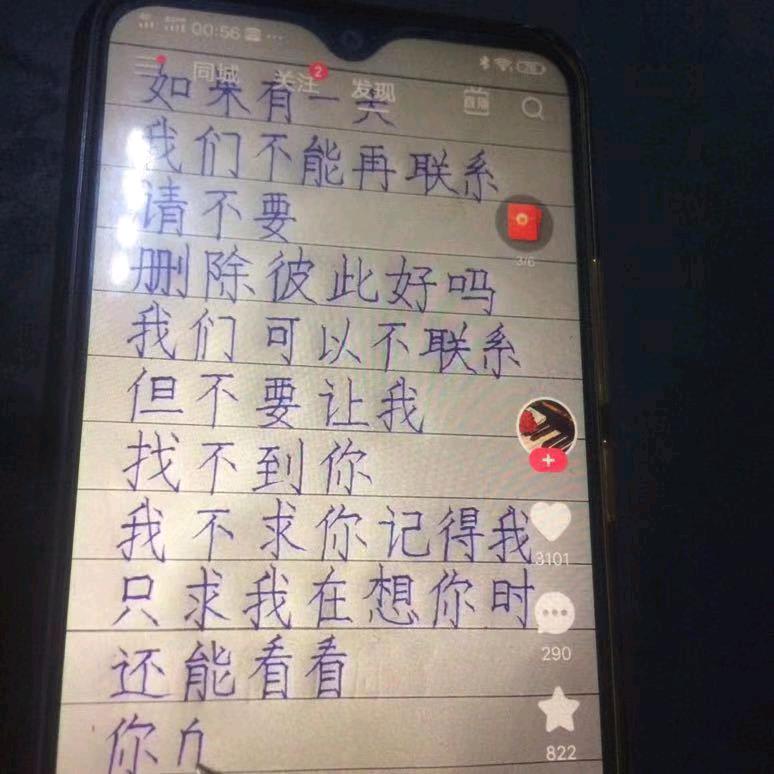 00:56
同城 关注 2 发现 直播
如果有一天
我们不能再联系
请不要
3/6
删除彼此好吗
我们可以不联系
但不要让我
找不到你
我不求你记得我
3101
只求我在想你时
还能看看
290
你
822